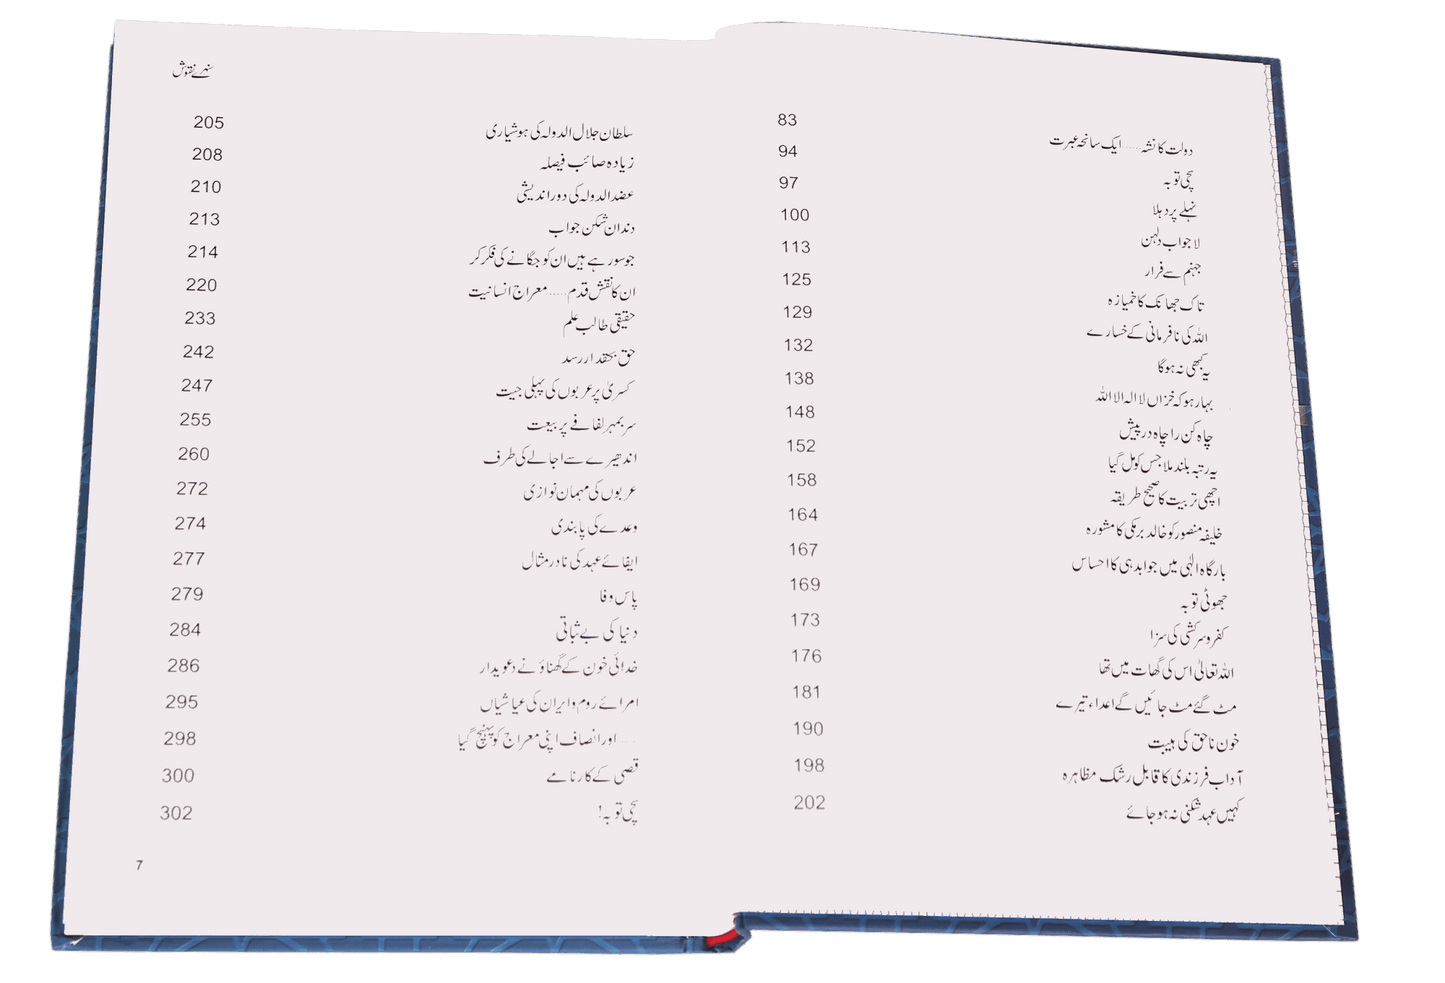 دولت کا نشہ..... ایک سانحہ عبرت 83
سچی توبہ 94
نہلے پر دہلا 97
لاجواب دلہن 100
جہنم سے فرار 113
تاک جھانک کا خمیازہ 125
اللہ کی نافرمانی کے خسارے 129
یہ کبھی نہ ہوگا 132
بہار ہو کہ خزاں لا الہ الا اللہ 138
چاہ کن را چاہ در پیش 148
یہ رتبہ بلند ملا جس کو مل گیا 152
اچھی تربیت کا صحیح طریقہ 158
خلیفہ منصور کو خالد برمکی کا مشورہ 164
بارگاہ الٰہی میں جوابدہی کا احساس 167
جھوٹی توبہ 169
کفر و سرکشی کی سزا 173
اللہ تعالیٰ اس کی گھات میں تھا 176
مٹ گئے مٹ جائیں گے اعداء تیرے 181
خون ناحق کی ہیبت 190
آداب فرزندی کا قابل رشک مظاہرہ 198
کہیں عہد شکنی نہ ہو جائے 202
سنہرے نقوش
سلطان جلال الدولہ کی ہوشیاری 205
زیادہ صائب فیصلہ 208
عضد الدولہ کی دور اندیشی 210
دندان شکن جواب 213
جو سو رہے ہیں ان کو جگانے کی فکر کر 214
ان کا نقش قدم..... معراج انسانیت 220
حقیقی طالب علم 233
حق بحقدار رسد 242
کسریٰ پر عربوں کی پہلی جیت 247
سر بمہر لفافے پر بیعت 255
اندھیرے سے اجالے کی طرف 260
عربوں کی مہمان نوازی 272
وعدے کی پابندی 274
ایفائے عہد کی نادر مثال 277
پاس وفا 279
دنیا کی بے ثباتی 284
خدائی خون کے گھناؤنے دعویدار 286
امرائے روم و ایران کی عیاشیاں 295
..... اور انصاف اپنی معراج کو پہنچ گیا 298
قصی کے کارنامے 300
سچی توبہ! 302
7